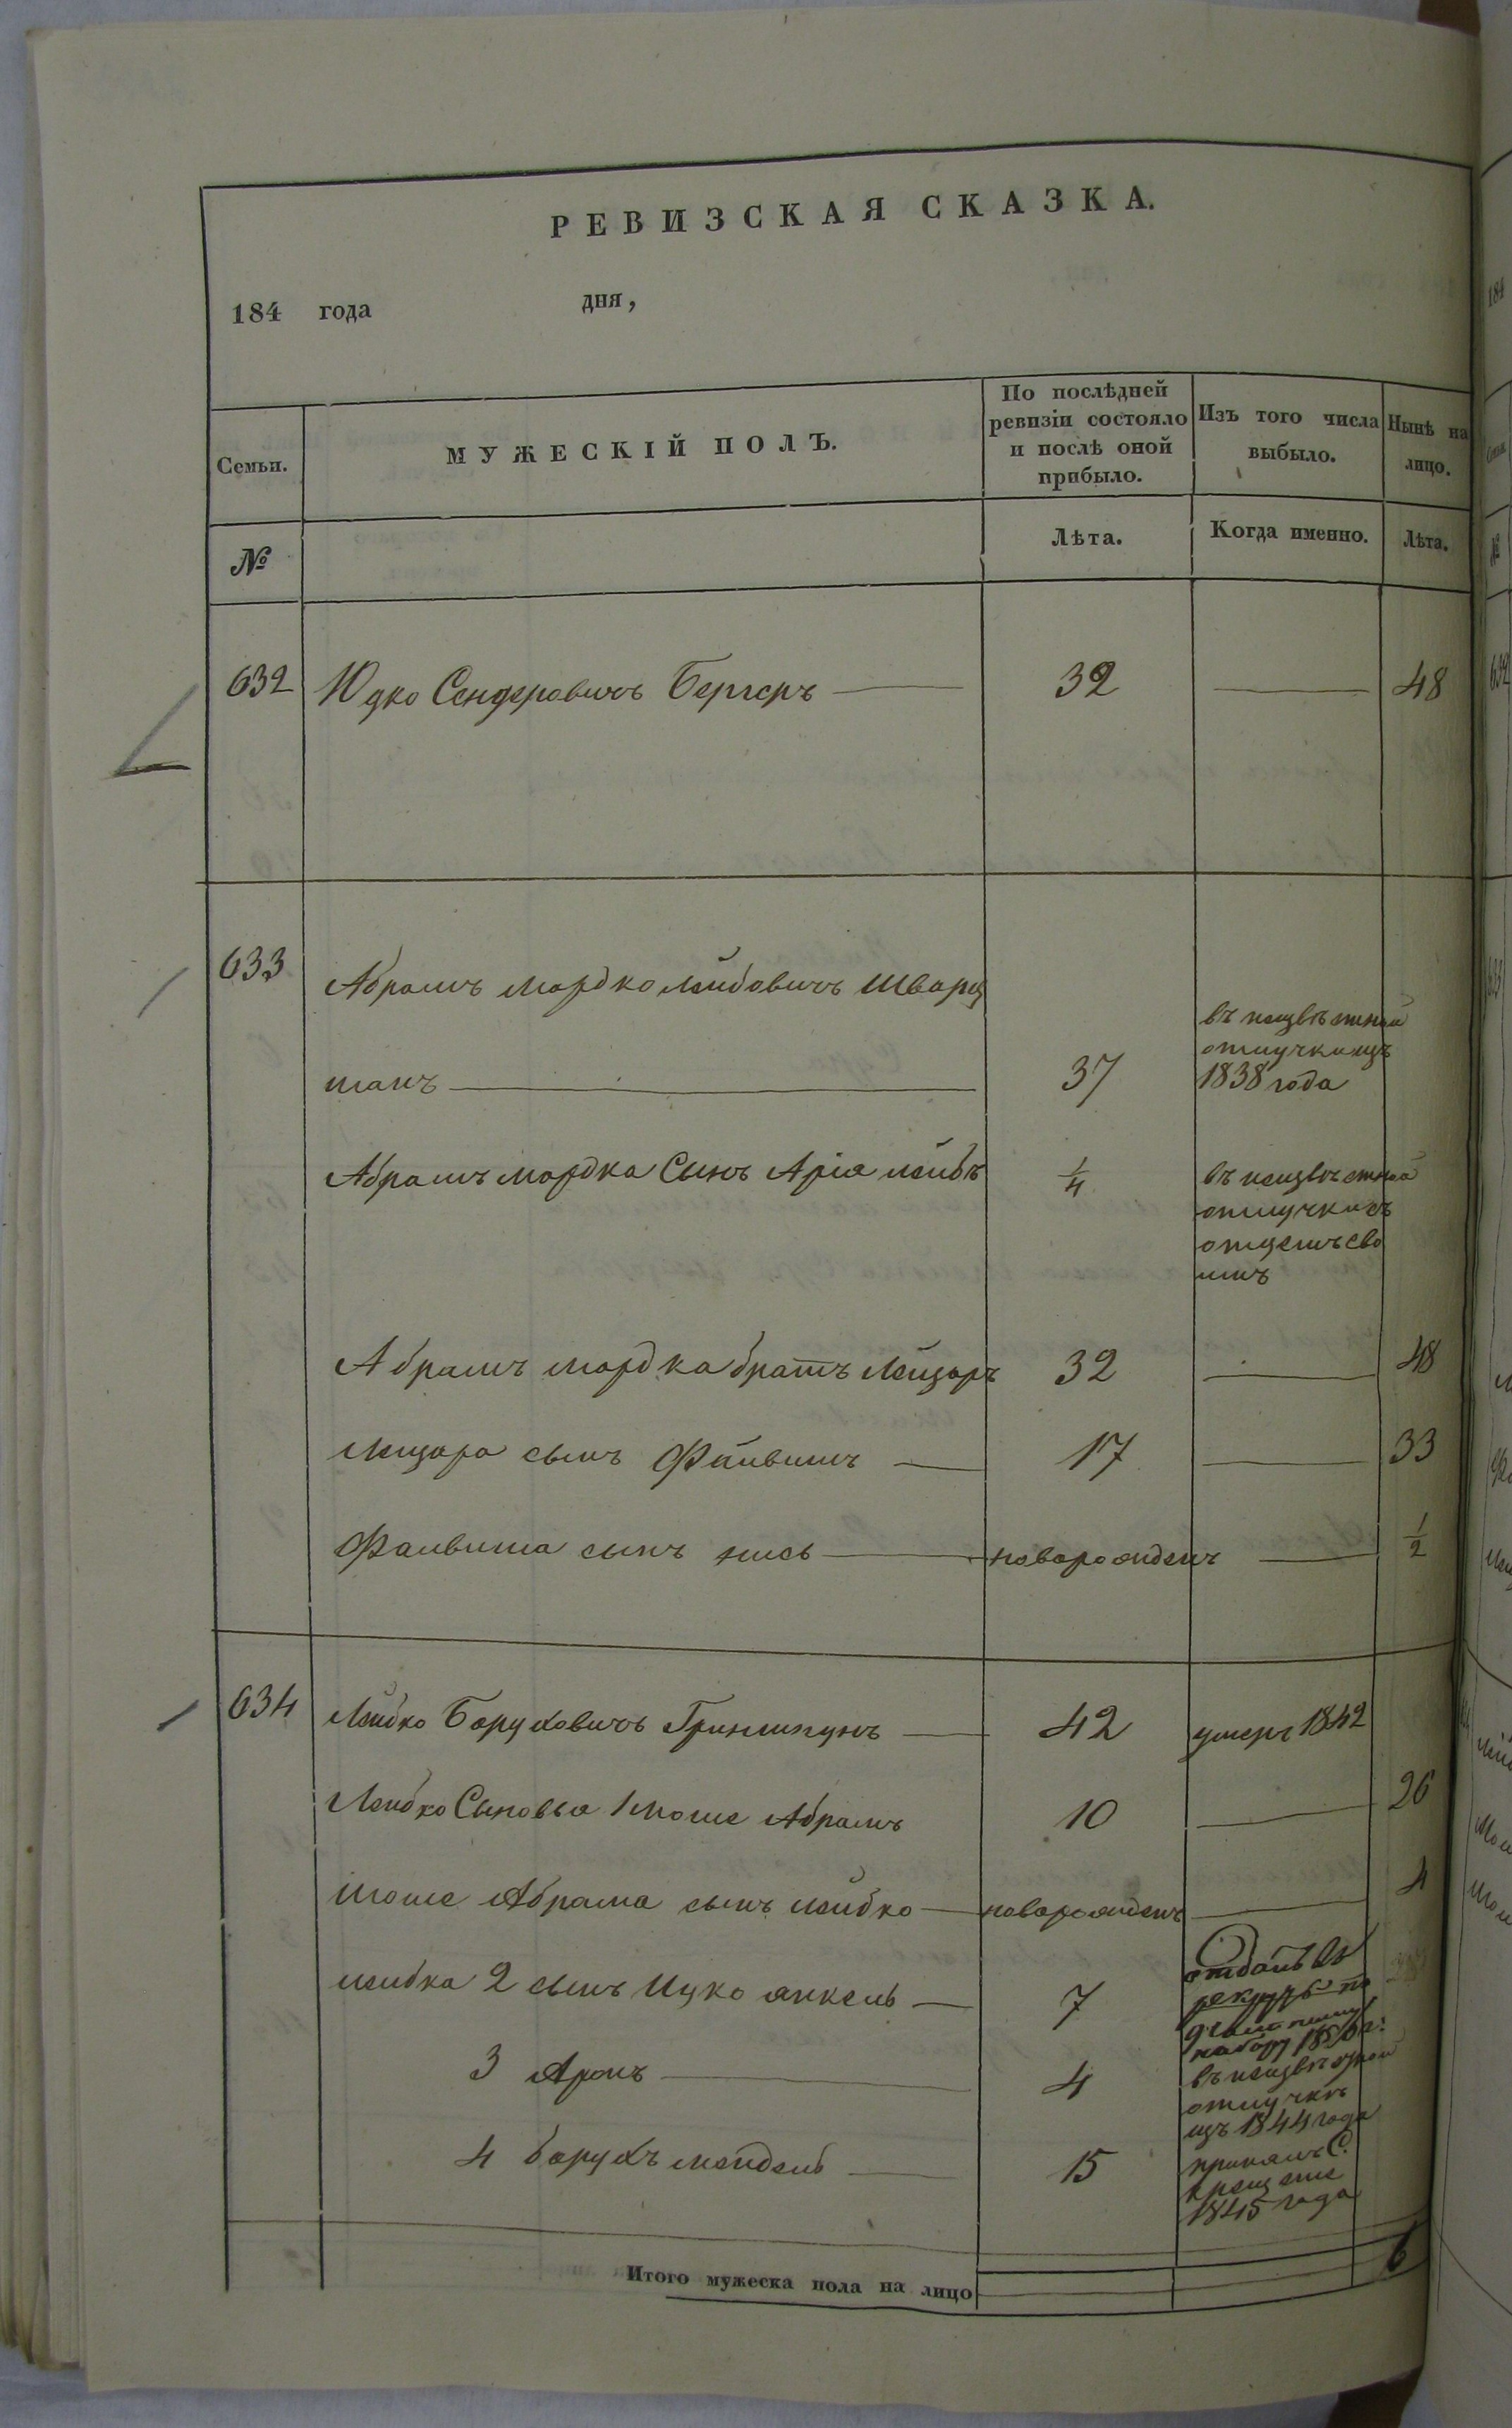 РЕВИЗСКАЯ СКАЗКА.
184 года дня,
Семьи. МУЖЕСКІЙ ПОЛЪ. По послѣдней ревизіи состояло и послѣ оной прибыло. Изъ того числа выбыло. Нынѣ на лицо.
№ Лѣта. Когда именно. Лѣта.
632 Юдко Сендеровичъ Бергеръ 32 48
633 Абрамъ Мордко Лейбовичъ Шварц
манъ 37
въ неизвѣстной
отлучки изъ
1838 года
Абрамъ Мордка Сынъ Арія Лейбъ 1/4
въ неизвѣстной
отлучки съ
отцемъ сво
имъ
Абрамъ Мордка братъ Лейзоръ 32 48
Лейзора сынъ Файвишъ 17 33
Файвиша сынъ новарожденъ 1/2
634 Лейбко Боруховичъ 42 умеръ 1842
Лейбко Сыновья 1 Моше Абрамъ 10 26
Моше Абрама сынъ Лейбко новорожденъ 4
Лейбка 2 сынъ Ицко Янкель 7
отданъ въ
рекруты по
набору г.
3 Аронъ 4
въ неизвѣстной
отлучкѣ
изъ 1844 года
4 Борухъ Мендель 15
принялъ С.
крещение
1845 года
Итого мужеска пола на лицо 6